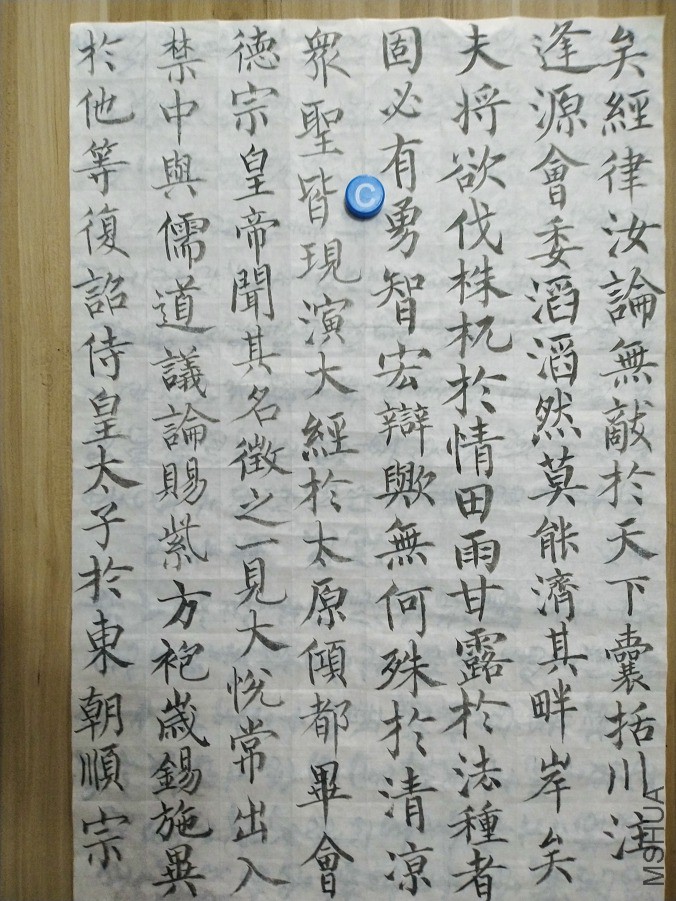 矣經律汝論無敵於天下囊括川注
逢源會委滔滔然莫能濟其畔岸矣
夫將欲伐株杌於情田雨甘露於法種者
固必有勇智宏辯歟無何殊於清涼
衆聖皆現演大經於太原傾都畢會
德宗皇帝聞其名徵之一見大悅常出入
禁中與儒道議論賜紫方袍歲錫施異
於他等復詔侍皇太子於東朝順宗
C
M9HUA